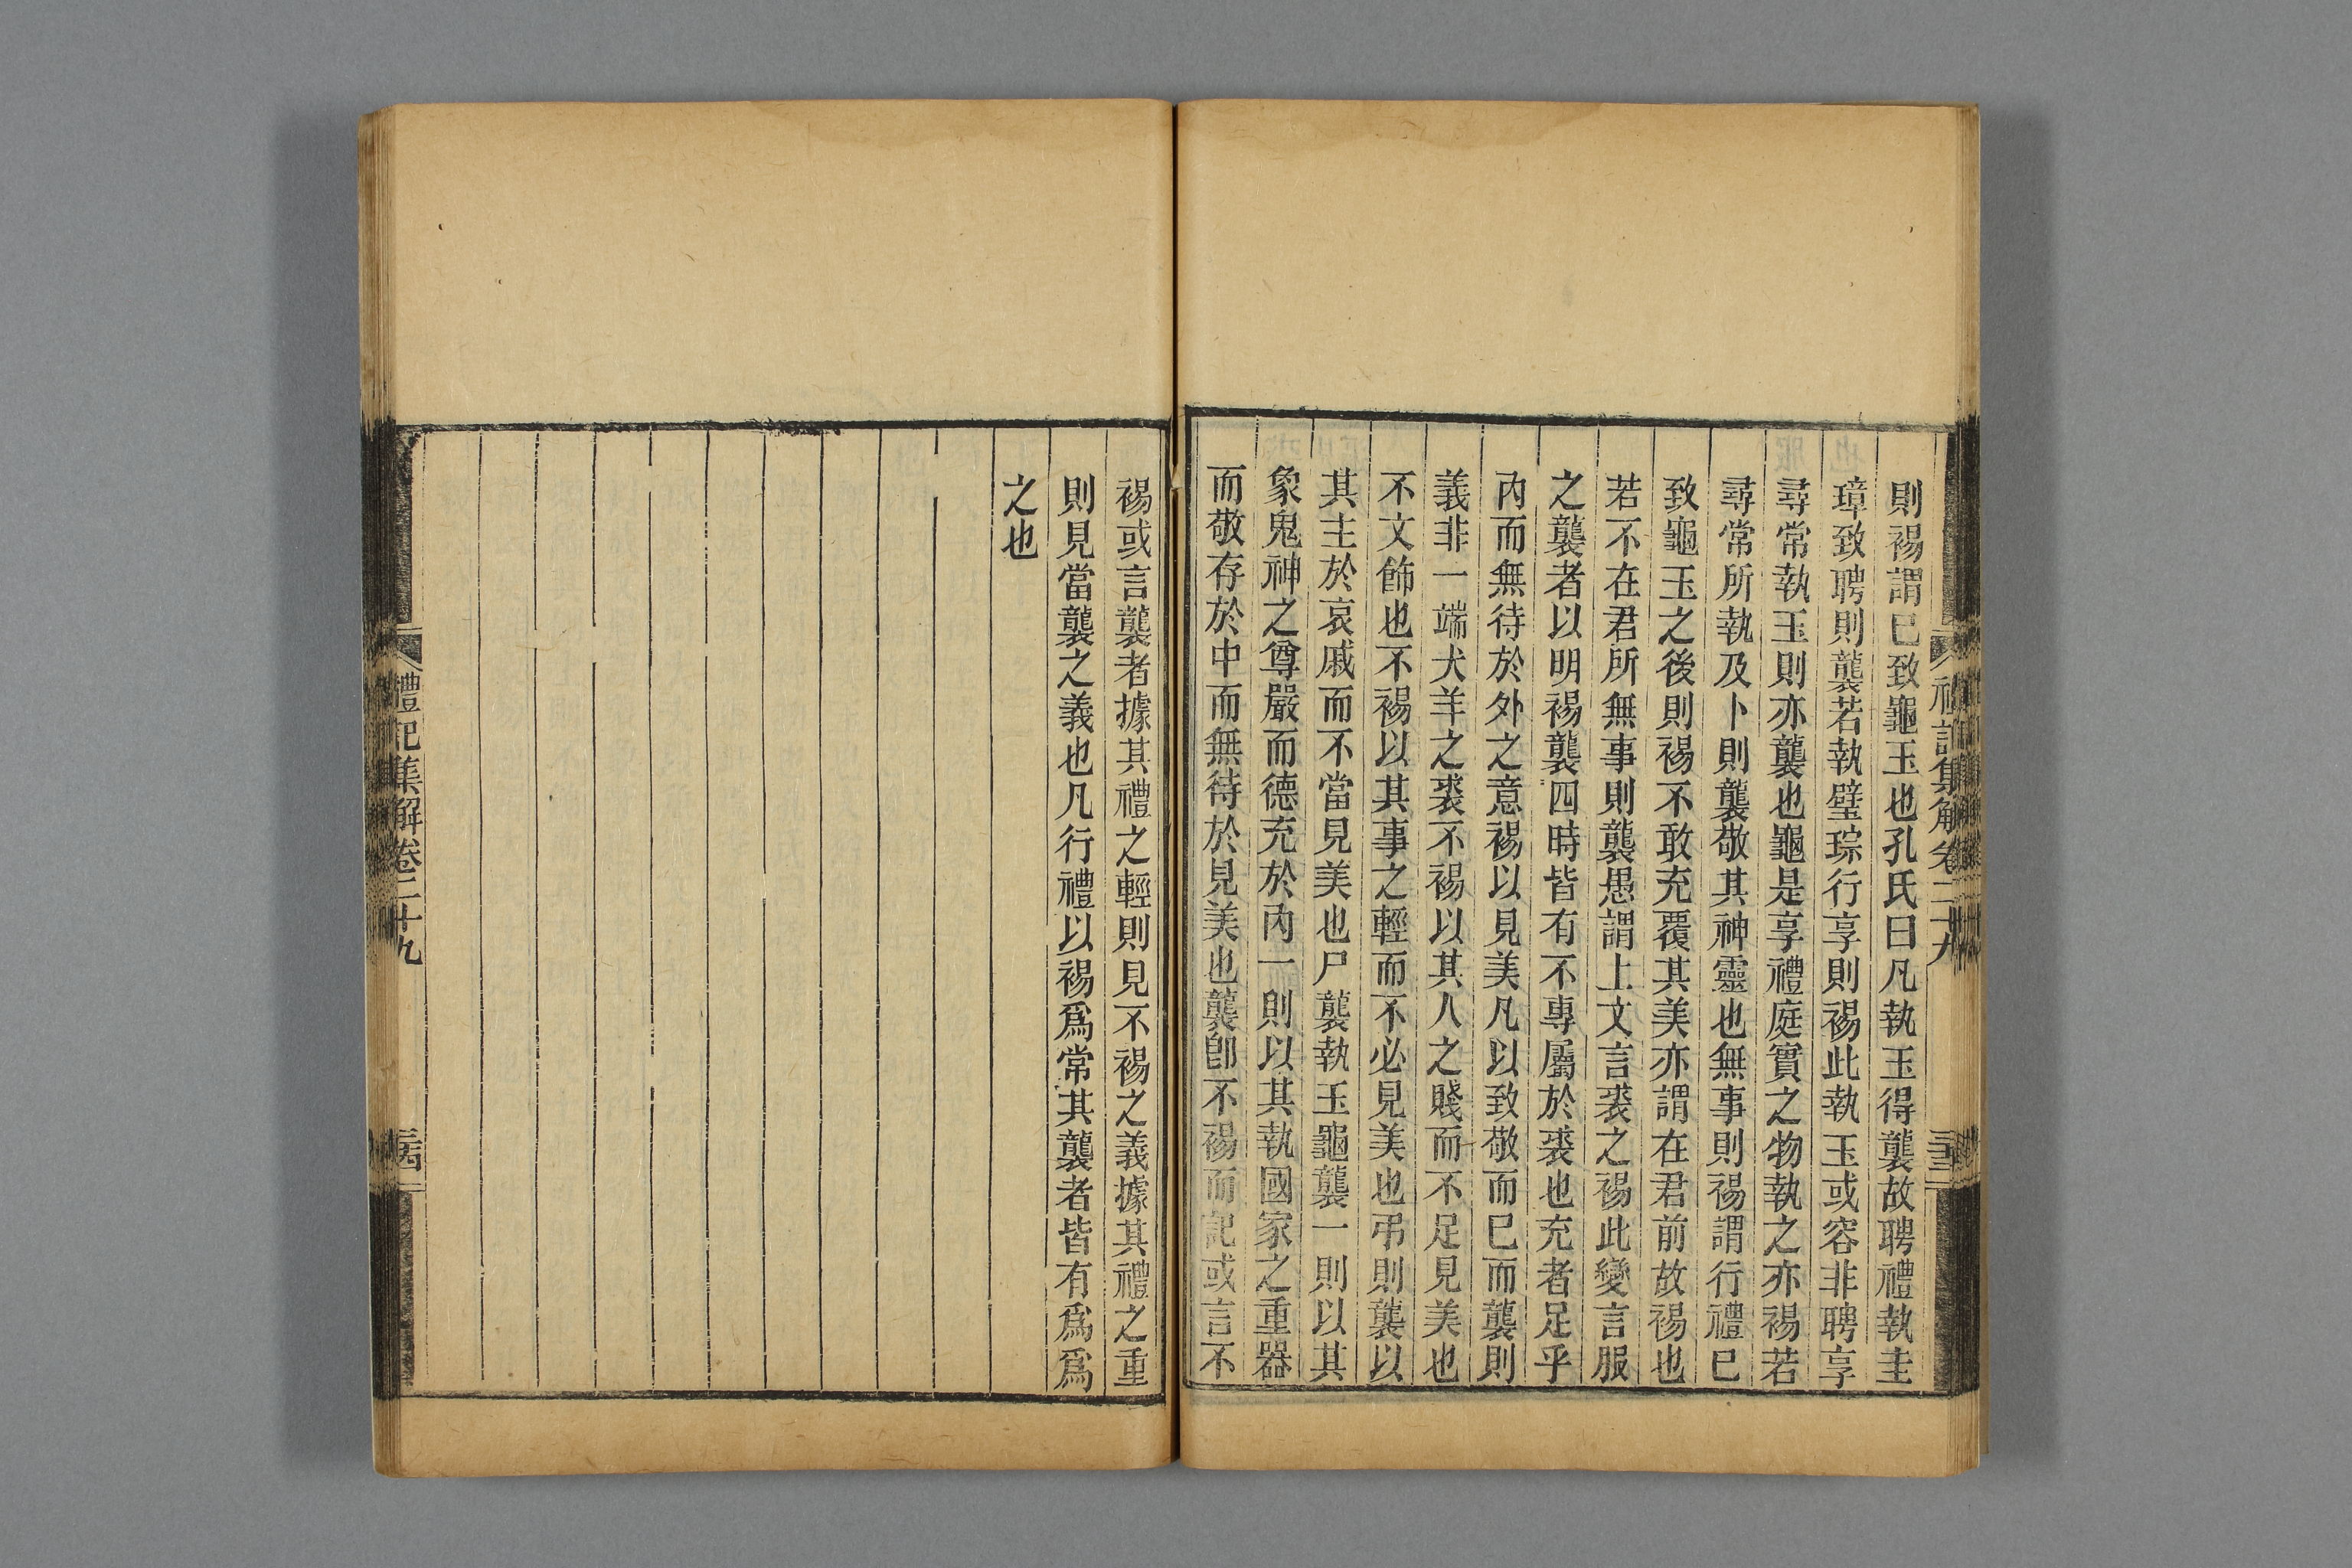 則裼謂已致龜玉也孔氏曰凡執玉得襲故聘禮執圭
璋致聘則襲若執璧琮行享則裼此執玉或容非聘享
尋常執玉則亦襲也龜是享禮庭實之物執之亦裼若
尋常所執及卜則襲敬其神靈也無事則裼謂行禮已
致龜玉之後則裼不敢充覆其美亦謂在君前故裼也
若不在君所無事則襲愚謂上文言裘之裼此變言服
之襲者以明裼襲四時皆有不專屬於裘也充者足乎
內而無待於外之意裼以見美凡以致敬而已而襲則
義非一端犬羊之裘不裼以其人之賤而不足見美也
不文飾也不裼以其事之輕而不必見美也弔則襲以
其主於哀戚而不當見美也尸襲執玉龜襲一則以其
象鬼神之尊嚴而德充於內一則以其執國家之重器
而敬存於中而無待於見美也襲卽不裼而記或言不
禮記集解卷二十九
三十三
裼或言襲者據其禮之輕則見不裼之義據其禮之重
則見當襲之義也凡行禮以裼爲常其襲者皆有爲爲
之也
禮記集解卷二十九
三十四